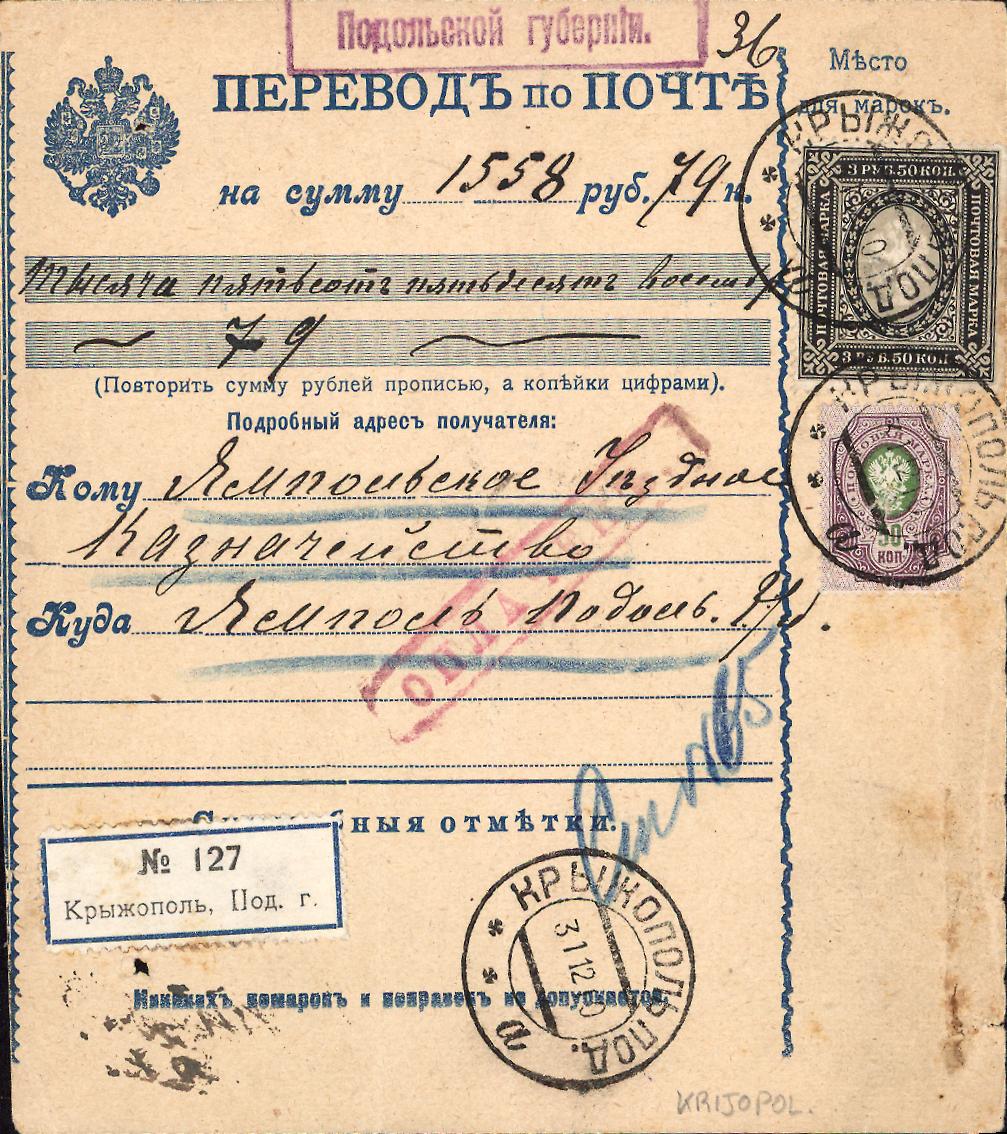 Подольской губерніи.
36
Мѣсто
для марокъ.
ПЕРЕВОДЪ по ПОЧТѢ
на сумму 1558 руб. 79 к.
Тысяча пятьсотъ пятьдесятъ восемь
79
(Повторить сумму рублей прописью, а копѣйки цифрами).
Подробный адресъ получателя:
Кому Ямпольское Уѣздное
Казначейство
Куда Ямполь Подол. губ.
3 РУБ. 50 КОП.
ПОЧТОВАЯ МАРКА
ПОЧТОВАЯ МАРКА
3 РУБ. 50 КОП.
КРЫЖОПОЛЬ ПОД.
ПОЧТОВАЯ МАРКА
50
КОП.
КРЫЖОПОЛЬ ПОД.
отмѣтки.
№ 127
Крыжополь, Под. г.
КРЫЖОПОЛЬ ПОД.
31 12
Никакихъ помарокъ и поправокъ не допускается.
KRIJOPOL.